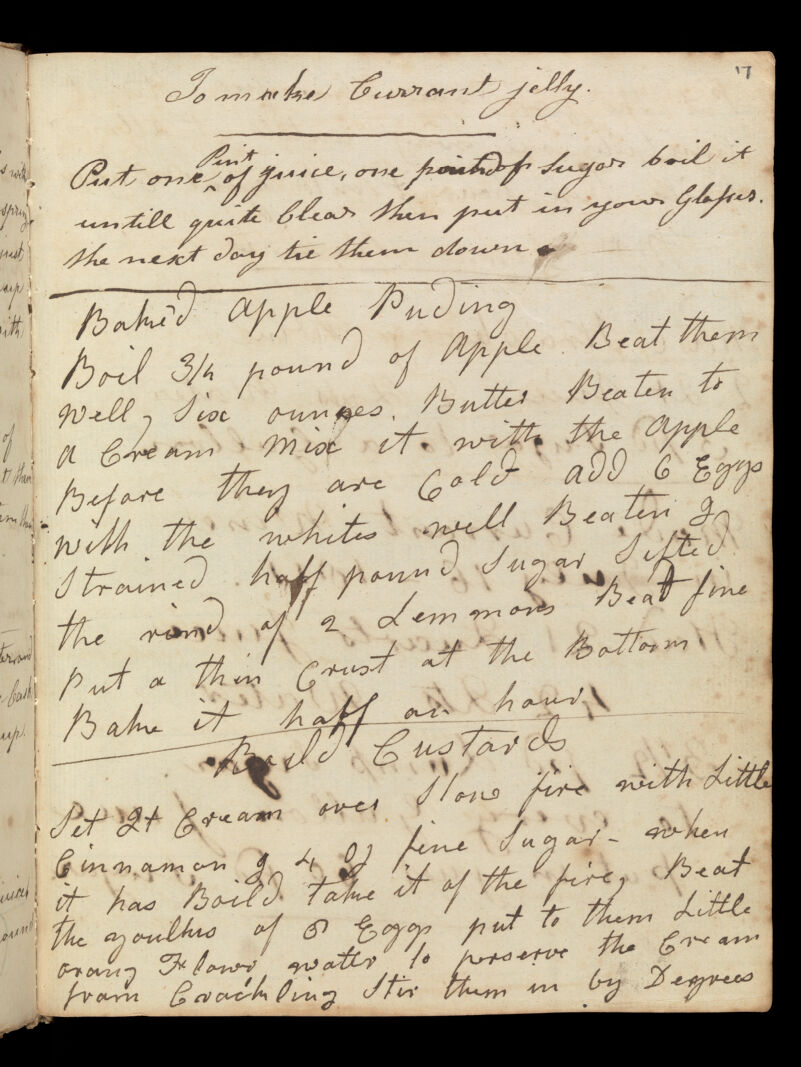 17
To make Currant jelly.
Put one Pint of juice, one pound of Sugar boil it
untill quite Clear then put in your Glasses.
the next day tie them down.
Baked Apple Puding
Boil 3/4 pound of Apple. Beat them
Well, Six ounzes. Butter Beaten to
a Cream Mix it. with. the Apple
Before they are Cold add 6 Eggs
with the whites well Beaten &
Strained half pound Sugar Sifted
the rind of 2 Lemmons Beat fine
Put a thin Crust at the Bottom
Bake it half an hour
Boild Custards
Set Qt Cream over Slow fire with Little
Cinnamon & 4 Oz fine Sugar - when
it has Boild. take it of the fire, Beat
the youlks of 8 Eggs put to them Little
orang Flowr watter to perserve the Cream
from Crackling Stir them in by Degrees